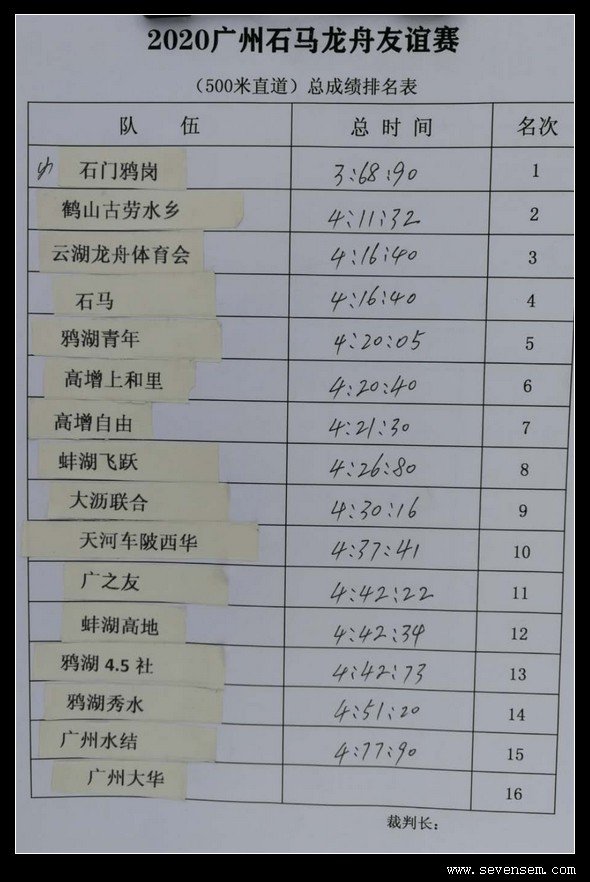 2020广州石马龙舟友谊赛
（500米直道）总成绩排名表
队 伍 总 时 间 名次
石门鸦岗 3:68:90 1
鹤山古劳水乡 4:11:32 2
云湖龙舟体育会 4:16:40 3
石马 4:16:40 4
鸦湖青年 4:20:05 5
高增上和里 4:20:40 6
高增自由 4:21:30 7
蚌湖飞跃 4:26:80 8
大沥联合 4:30:16 9
天河车陂西华 4:37:41 10
广之友 4:42:22 11
蚌湖高地 4:42:34 12
鸦湖4.5社 4:42:73 13
鸦湖秀水 4:51:20 14
广州水结 4:77:90 15
广州大华 16
裁判长：
www.sevensem.com